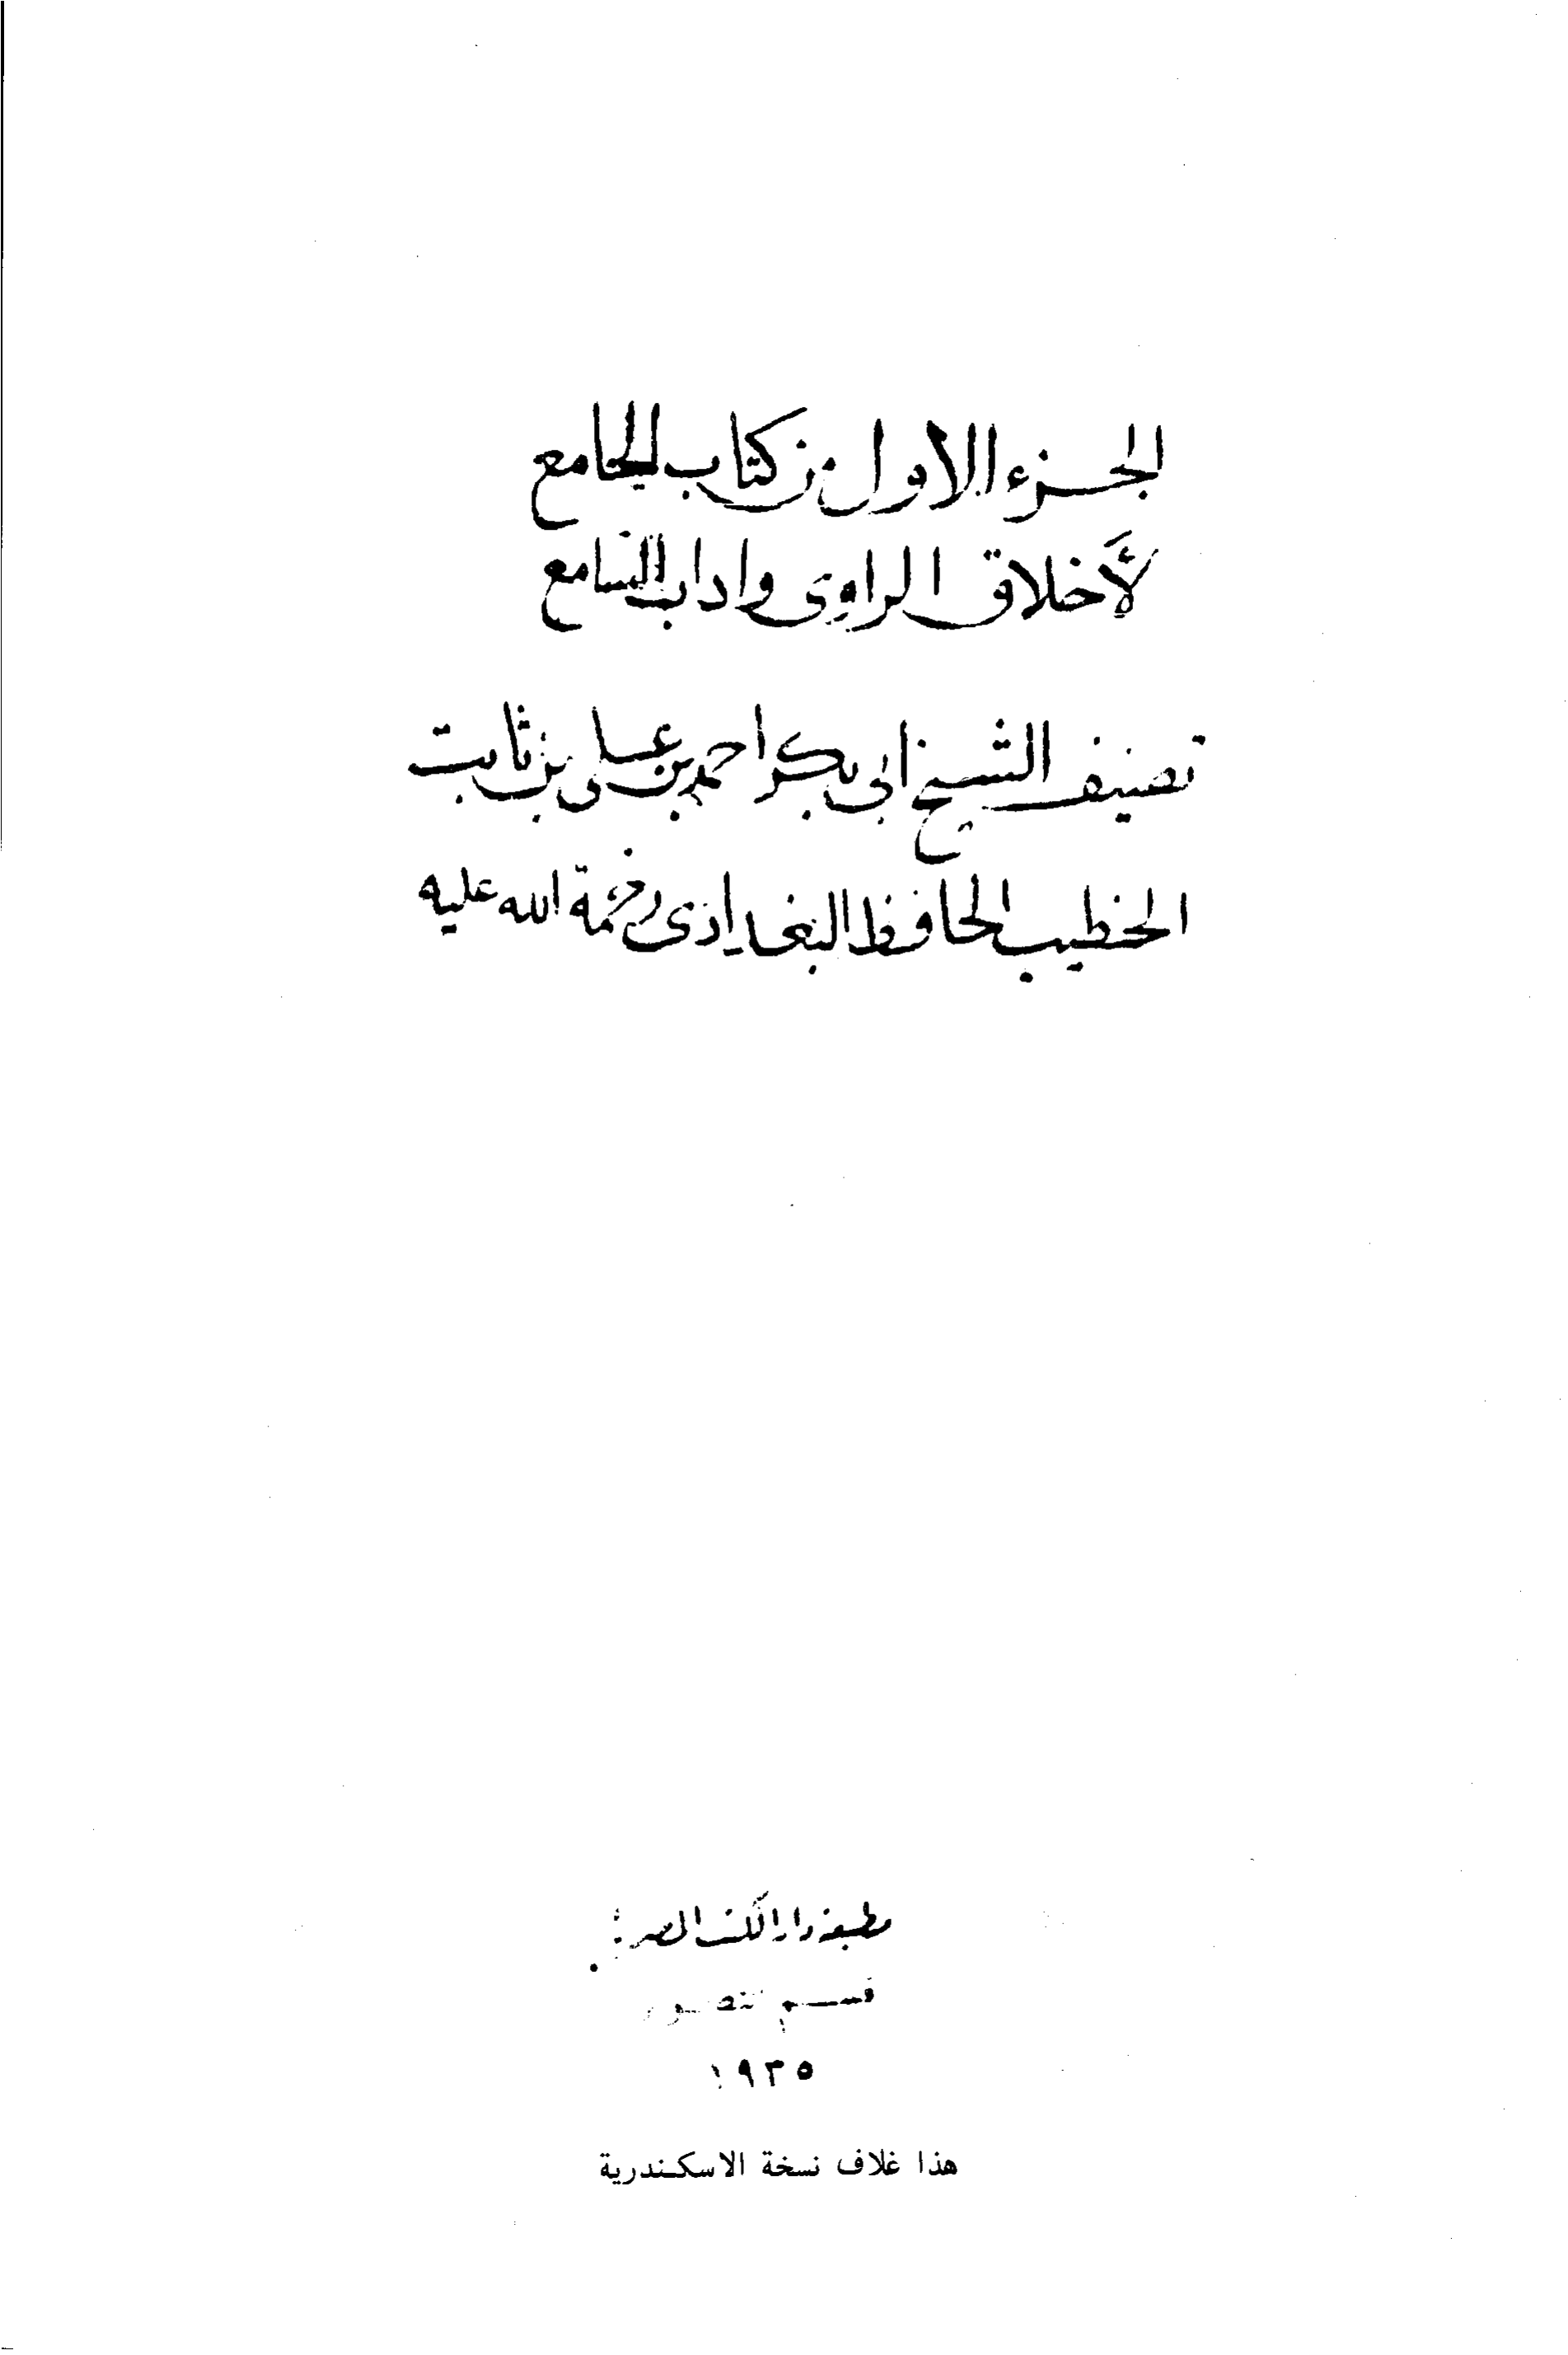 الجزء الاول من كتاب الجامع
لأخلاق الراوى واداب السامع
تصنيف الشيخ ابى بكر احمد بن على بن ثابت
الخطيب الحافظ البغداذى رحمة الله عليه
مطبعة دار الكتب المصرية
قسم التصوير
١٩٣٥
هذا غلاف نسخة الاسكندرية